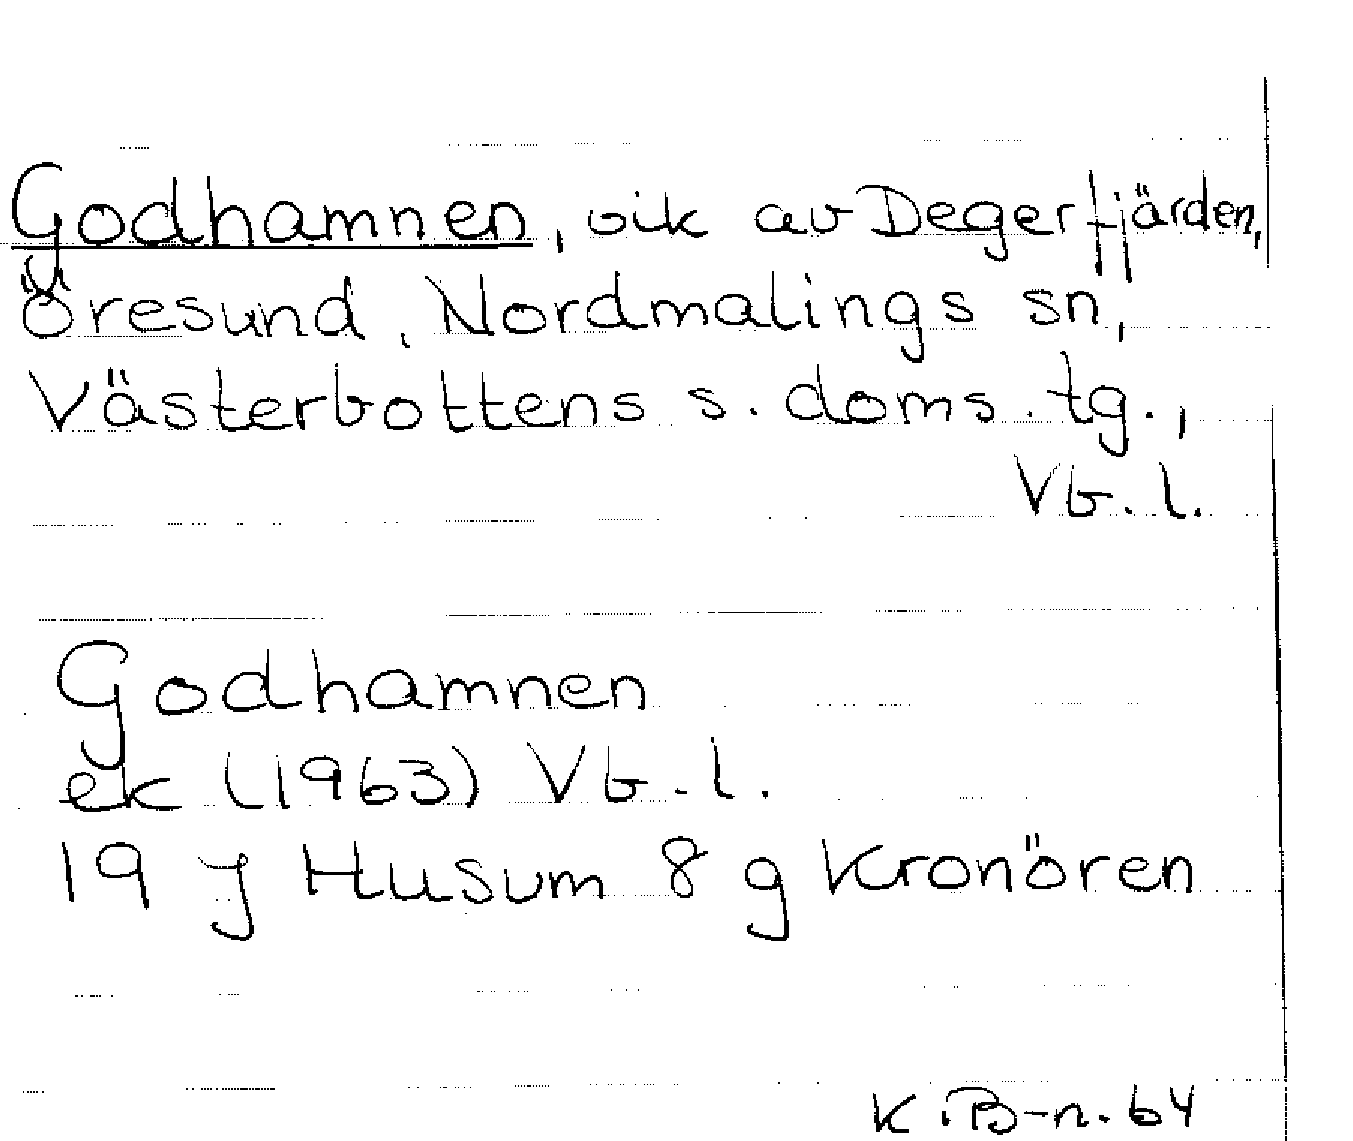 Godhamnen, vik av Degerfjärden,
Öresund, Nordmalings sn,
Västerbottens s. doms. tg.,
Vb. l.
Godhamnen
ek (1963) Vb. l.
19 J Husum 8 g Kronören
K. B-n. 64